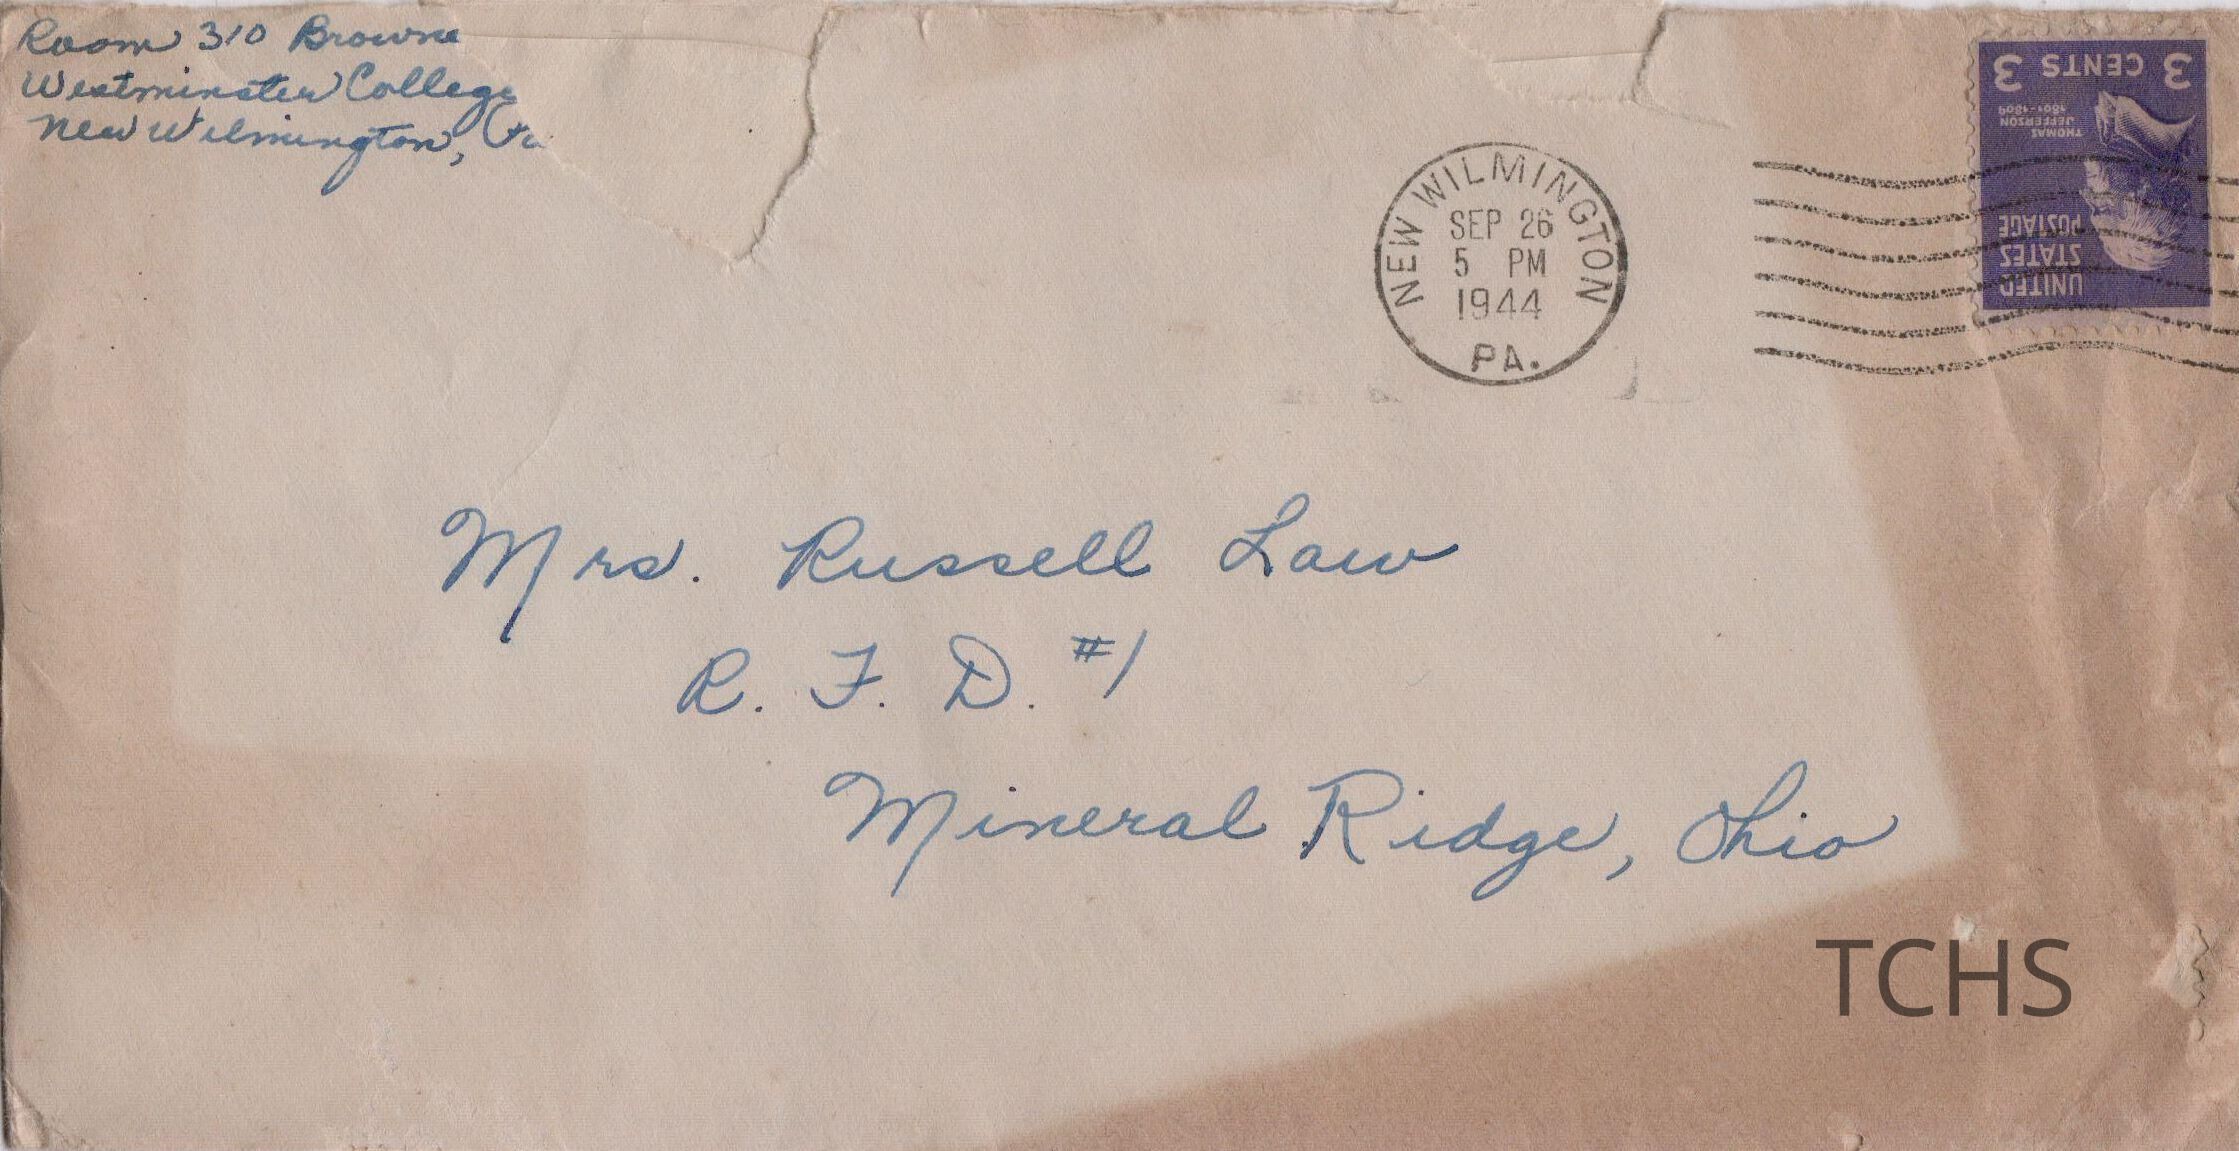 Room 310 Browne
Westminster College
New Wilmington, Pa.
NEW WILMINGTON
SEP 26
5 PM
1944
PA.
3 CENTS 3
THOMAS
JEFFERSON
1801-1809
UNITED
STATES
POSTAGE
Mrs. Russell Law
R. F. D. #1
Mineral Ridge, Ohio
TCHS